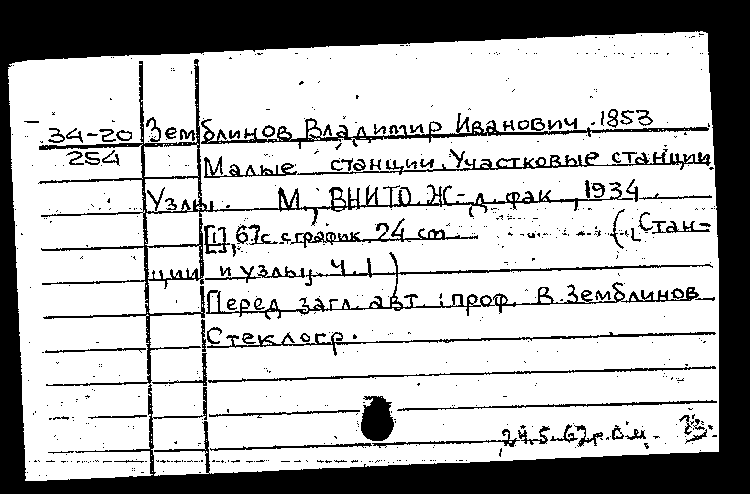 34-20 Земблинов, Владимир Иванович, 1853
254 Малые станции. Участковые станции.
Узлы. М., ВНИТО Ж-д. фак., 1934.
[1], 67 с. с график. 24 см. (Стан-
ции и узлы. Ч. 1)
Перед загл. авт.: проф. В. Земблинов
Стеклогр.
24.5.62г.